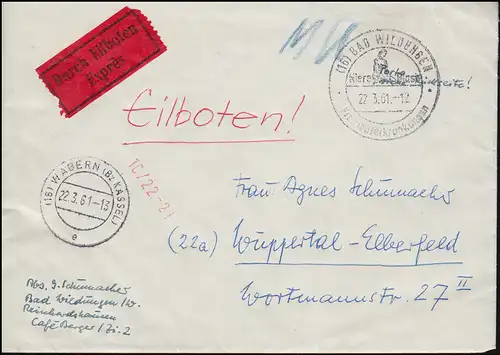 Durch Eilboten
Exprès
(16) BAD WILDUNGEN
22.3.61.-12
Porto
Rückseite!
Eilboten!
(16) WABERN (BZ KASSEL)
22.3.61.-13
e
Frau Agnes Schumacher
(22a) Wuppertal-Elberfeld
Wortmannstr. 27 II
Abs. J. Schumacher
Bad Wildungen/W.
Reinhardshausen
Café Berger/Zi. 2